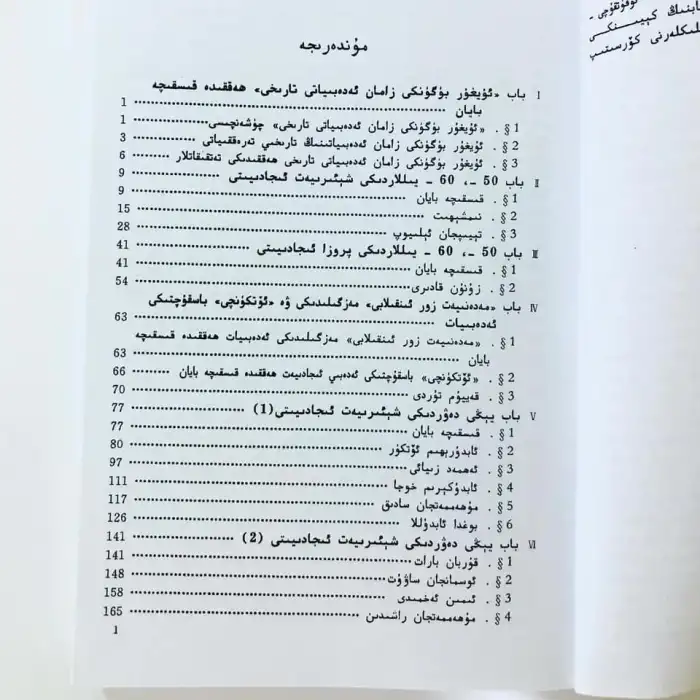 مۇندەرىجە
I باب «ئۇيغۇر بۈگۈنكى زامان ئەدەبىياتى تارىخى» ھەققىدە قىسقىچە
بايان ················ 1
§ 1 . «ئۇيغۇر بۈگۈنكى زامان ئەدەبىياتى تارىخى» چۈشەنچىسى ················ 1
§ 2 . ئۇيغۇر بۈگۈنكى زامان ئەدەبىياتىنىڭ تارىخىي تەرەققىياتى ················ 3
§ 3 . ئۇيغۇر بۈگۈنكى زامان ئەدەبىياتى تارىخى ھەققىدىكى تەتقىقاتلار ················ 6
II باب 50 ـ، 60 ـ يىللاردىكى شېئىرىيەت ئىجادىيىتى ················ 9
§ 1 . قىسقىچە بايان ················ 9
§ 2 . نىمشېھىت ················ 15
§ 3 . تېيىپجان ئېلىيوپ ················ 28
III باب 50 ـ، 60 ـ يىللاردىكى پروزا ئىجادىيىتى ················ 41
§ 1 . قىسقىچە بايان ················ 41
§ 2 . زۇنۇن قادىرى ················ 54
IV باب «مەدەنىيەت زور ئىنقىلابى» مەزگىلىدىكى ۋە «ئۆتكۈنچى» باسقۇچتىكى
ئەدەبىيات ················ 63
§ 1 . «مەدەنىيەت زور ئىنقىلابى» مەزگىلىدىكى ئەدەبىيات ھەققىدە قىسقىچە
بايان ················ 63
§ 2 . «ئۆتكۈنچى» باسقۇچتىكى ئەدەبىي ئىجادىيەت ھەققىدە قىسقىچە بايان ················ 66
§ 3 . قەييۇم تۇردى ················ 70
V باب يېڭى دەۋردىكى شېئىرىيەت ئىجادىيىتى (1) ················ 77
§ 1 . قىسقىچە بايان ················ 77
§ 2 . ئابدۇرېھىم ئۆتكۈر ················ 80
§ 3 . ئەھمەد زىيائى ················ 97
§ 4 . ئابدۇكېرىم خوجا ················ 111
§ 5 . مۇھەممەتجان سادىق ················ 117
§ 6 . بوغدا ئابدۇللا ················ 126
VI باب يېڭى دەۋردىكى شېئىرىيەت ئىجادىيىتى (2) ················ 141
§ 1 . قۇربان بارات ················ 141
§ 2 . ئوسمانجان ساۋۇت ················ 148
§ 3 . ئىمىن ئەخمىدى ················ 158
§ 4 . مۇھەممەتجان راشىدىن ················ 165
1